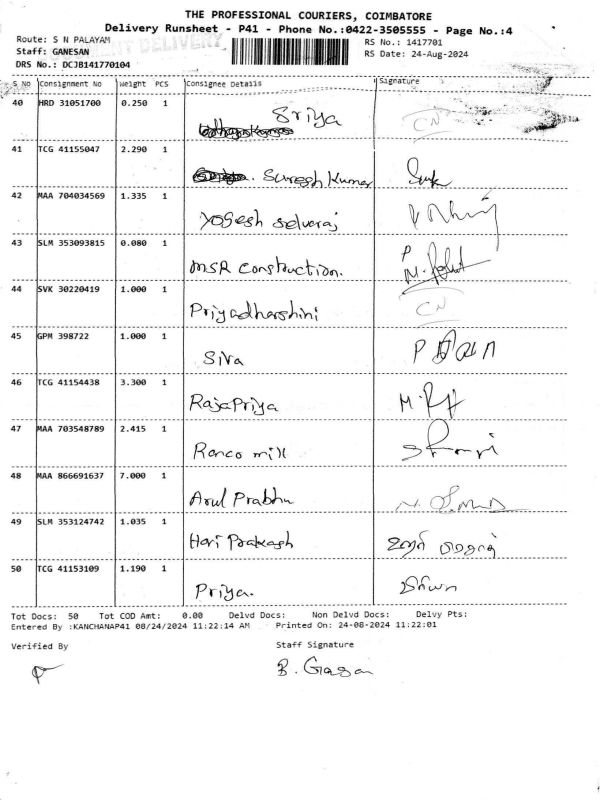 THE PROFESSIONAL COURIERS, COIMBATORE
Delivery Runsheet - P41 - Phone No.:0422-3505555 - Page No.:4
Route: S N PALAYAM
RS No.: 1417701
Staff: GANESAN
DELIVERY
RS Date: 24-Aug-2024
DRS No.: DCJB141770104
S No Consignment No Weight PCS Consignee Details Signature
40 HRD 31051700 0.250 1
Sriya CN
41 TCG 41155047 2.290 1
Suresh Kumar
42 MAA 704034569 1.335 1
Yogesh Selvaraj
43 SLM 353093815 0.080 1
MSR Construction.
44 SVK 30220419 1.000 1
Priyadharshini CN
45 GPM 398722 1.000 1
Siva
46 TCG 41154438 3.300 1
RajaPriya
47 MAA 703548789 2.415 1
Ranco mill
48 MAA 866691637 7.000 1
Arul Prabhu
49 SLM 353124742 1.035 1
Hari Prakash
50 TCG 41153109 1.190 1
Priya.
Tot Docs: 50 Tot COD Amt: 0.00 Delvd Docs: Non Delvd Docs: Delvy Pts:
Entered By :KANCHANAP41 08/24/2024 11:22:14 AM Printed On: 24-08-2024 11:22:01
Verified By Staff Signature